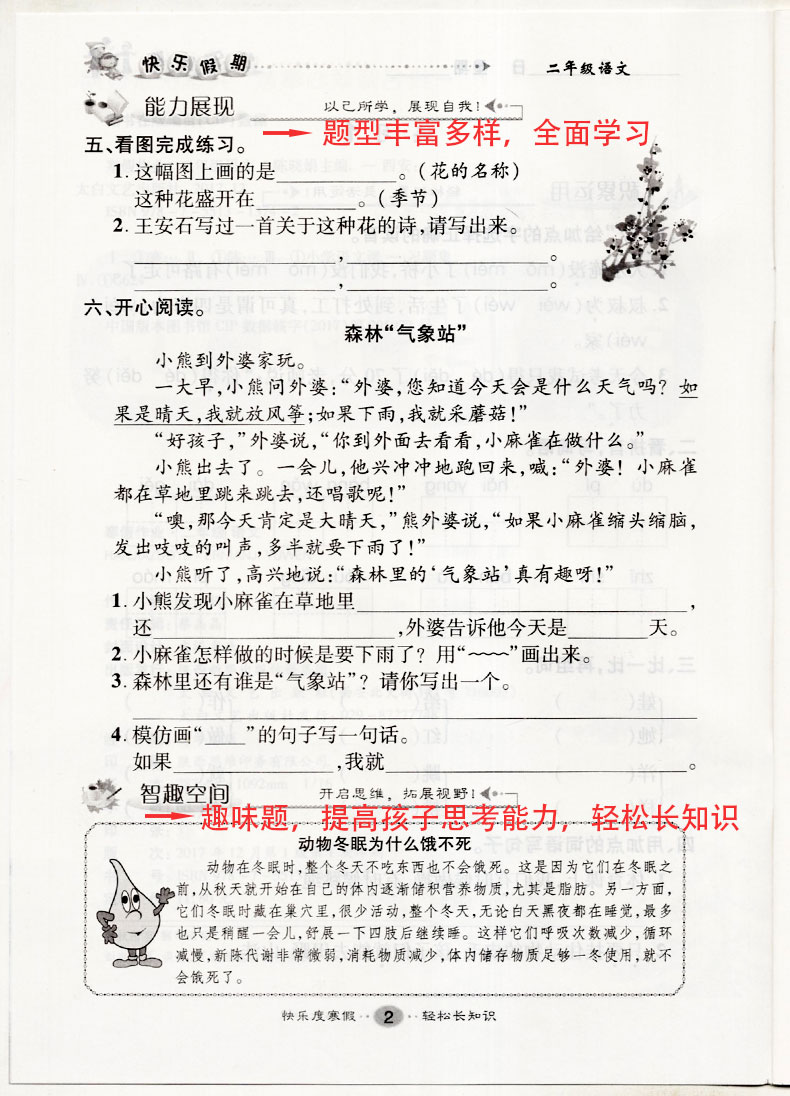 快乐假期
二年级语文
能力展现
以己所学，展现自我！
题型丰富多样，全面学习
五、看图完成练习。
1.这幅图上画的是__________。(花的名称)
这种花盛开在__________。(季节)
2.王安石写过一首关于这种花的诗,请写出来。
____________________,____________________。
____________________,____________________。
六、开心阅读。
森林“气象站”
小熊到外婆家玩。
一大早,小熊问外婆:“外婆,您知道今天会是什么天气吗？如
果是晴天,我就放风筝;如果下雨,我就采蘑菇!”
“好孩子,”外婆说,“你到外面去看看,小麻雀在做什么。”
小熊出去了。一会儿,他兴冲冲地跑回来,喊:“外婆！小麻雀
都在草地里跳来跳去,还唱歌呢!”
“噢,那今天肯定是大晴天,”熊外婆说,“如果小麻雀缩头缩脑,
发出吱吱的叫声,多半就要下雨了!”
小熊听了,高兴地说:“森林里的‘气象站’真有趣呀!”
1.小熊发现小麻雀在草地里______________________________,
还____________________,外婆告诉他今天是_______天。
2.小麻雀怎样做的时候是要下雨了？用“﹏﹏”画出来。
3.森林里还有谁是“气象站”？请你写出一个。
4.模仿画“____”的句子写一句话。
如果______________,我就__________________________。
智趣空间
开启思维，拓展视野！
趣味题，提高孩子思考能力，轻松长知识
动物冬眠为什么饿不死
动物在冬眠时,整个冬天不吃东西也不会饿死。这是因为它们在冬眠之
前,从秋天就开始在自己的体内逐渐储积营养物质,尤其是脂肪。另一方面,
它们冬眠时藏在巢穴里,很少活动,整个冬天,无论白天黑夜都在睡觉,最多
也只是稍醒一会儿,舒展一下四肢后继续睡。这样它们呼吸次数减少,循环
减慢,新陈代谢非常微弱,消耗物质减少,体内储存物质足够一冬使用,就不
会饿死了。
快乐度寒假··2··轻松长知识